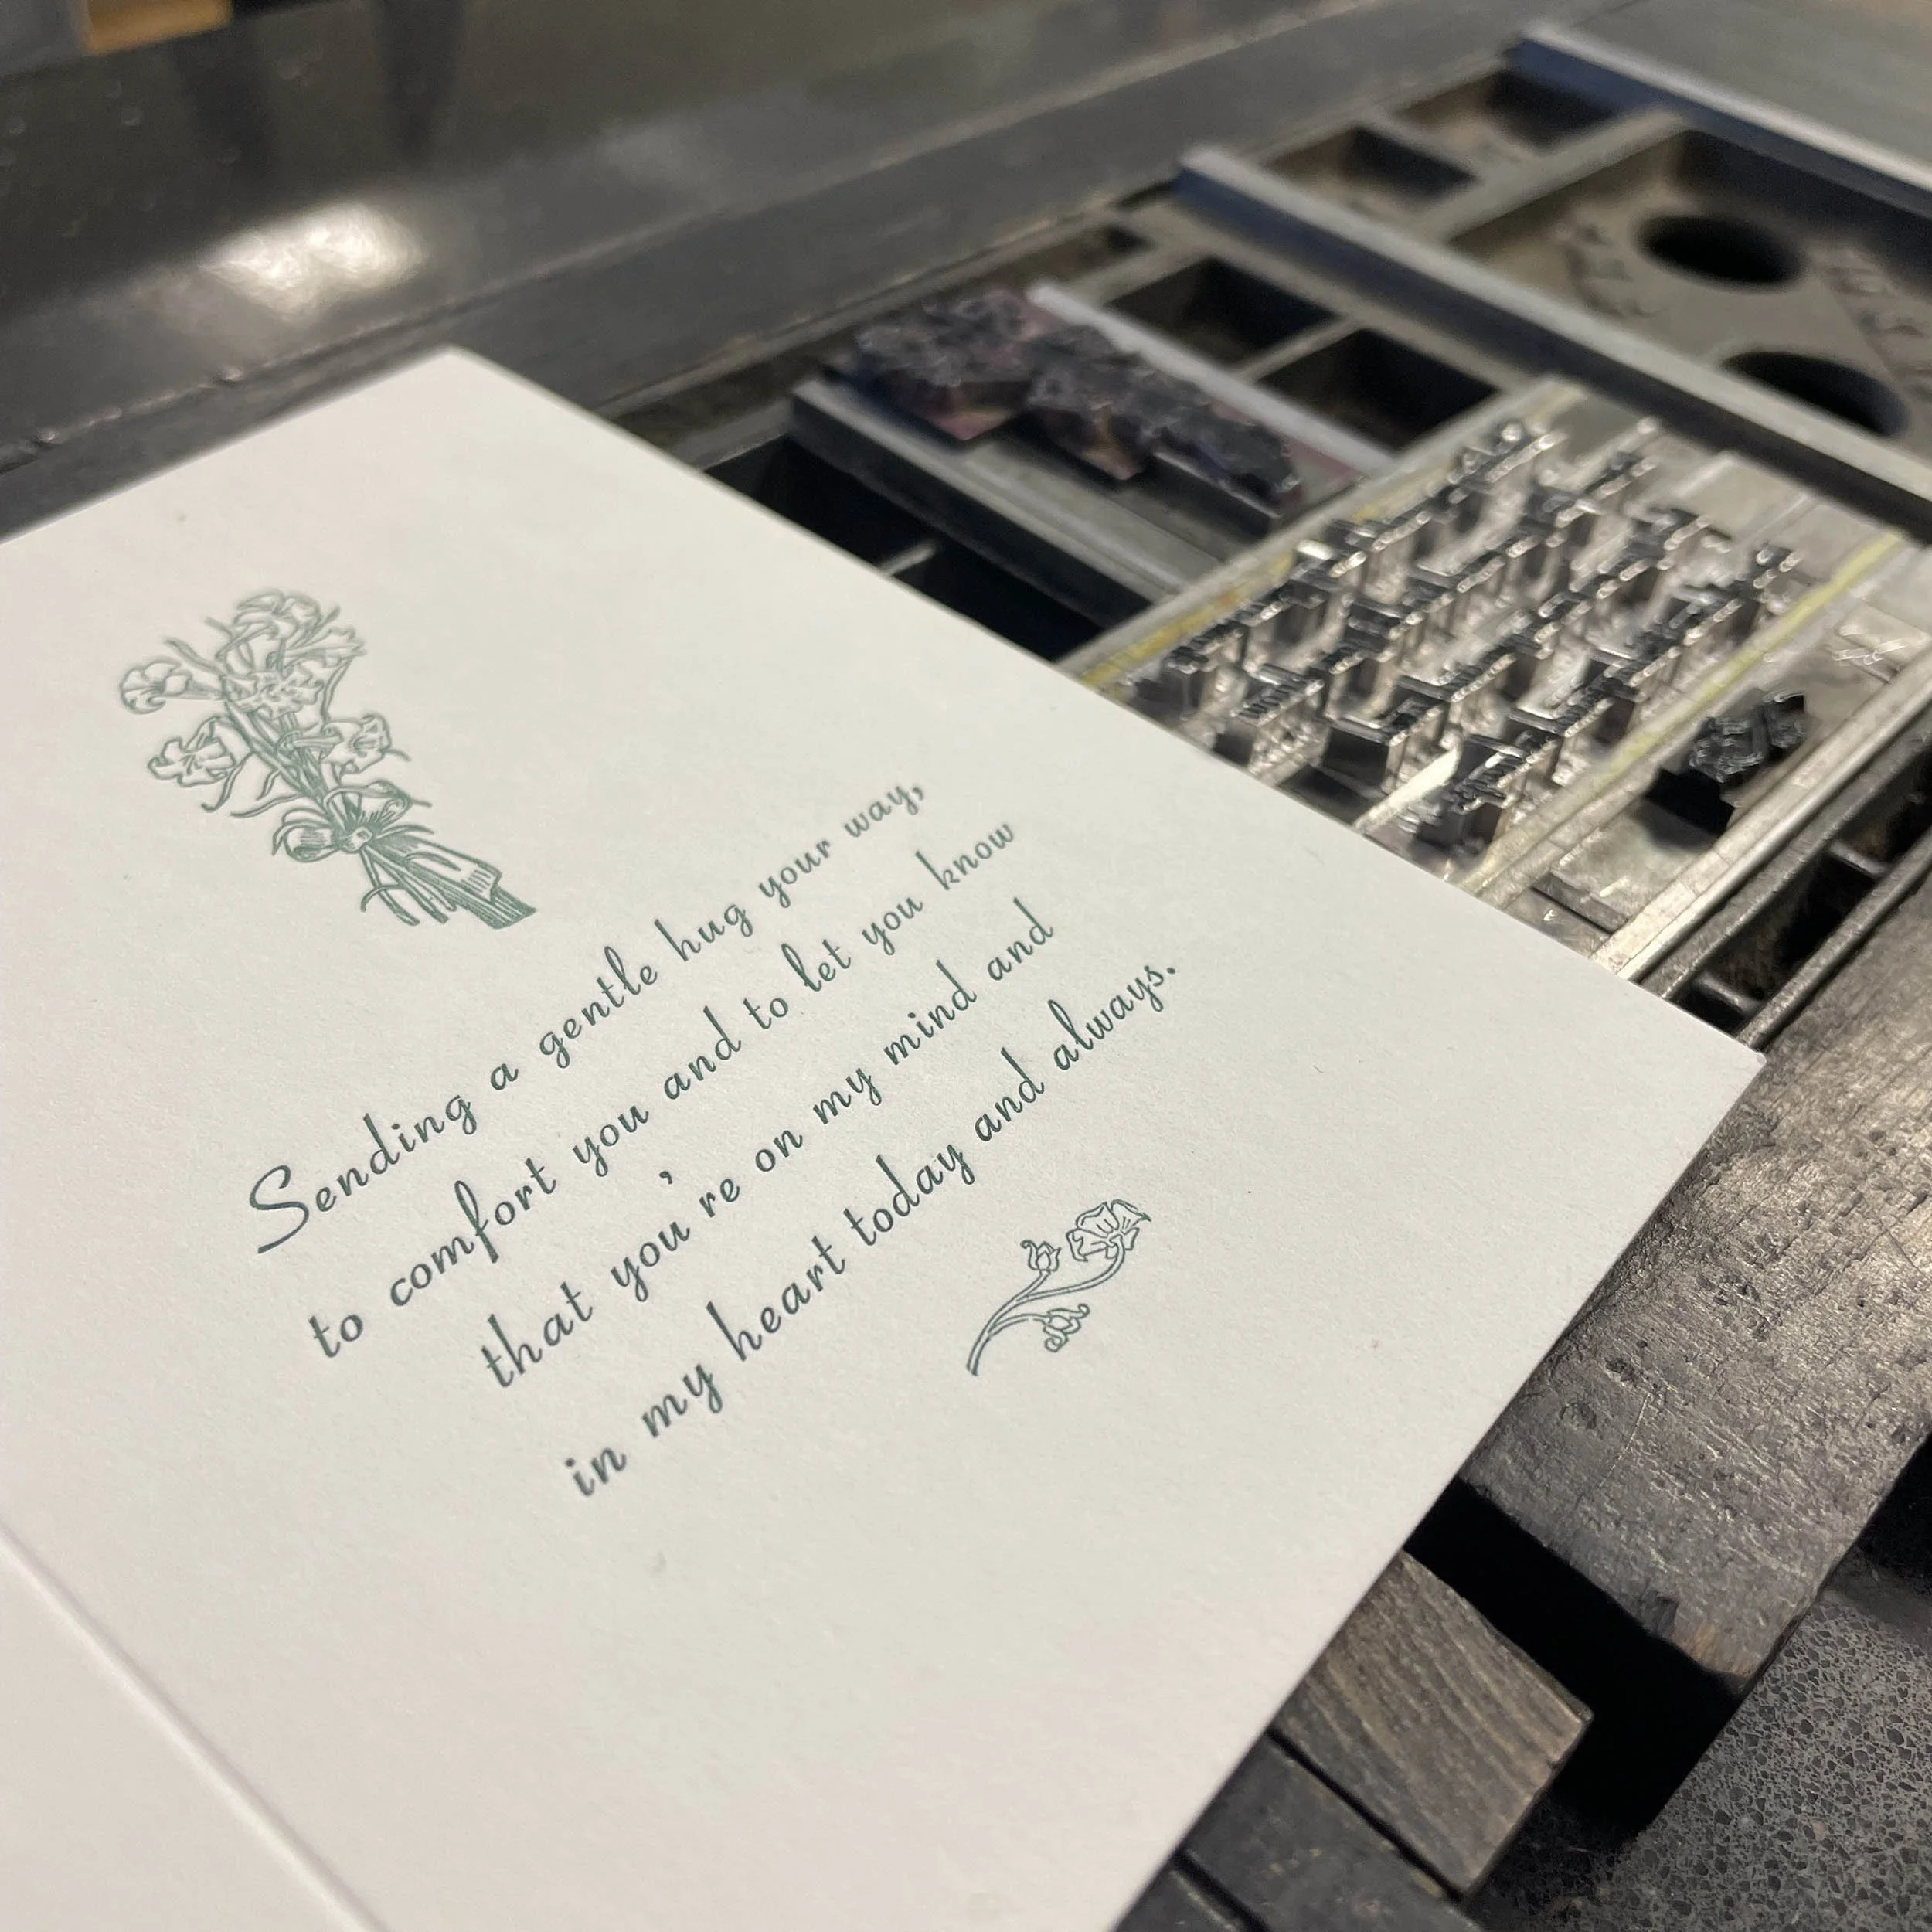 Sending a gentle hug your way,
to comfort you and to let you know
that you're on my mind and
in my heart today and always.